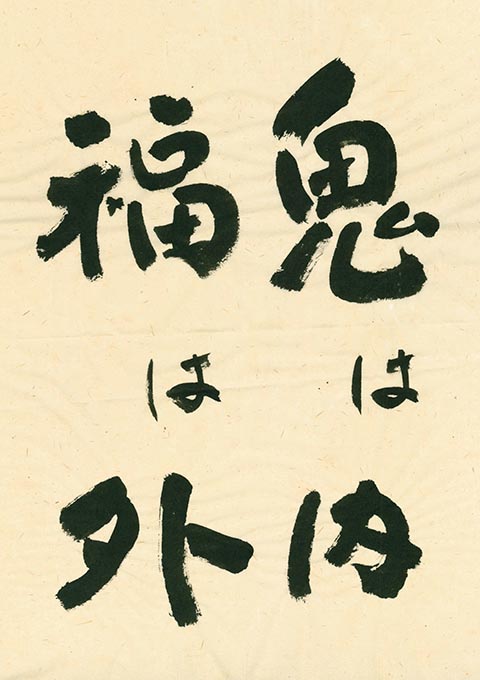 鬼は内
福は外